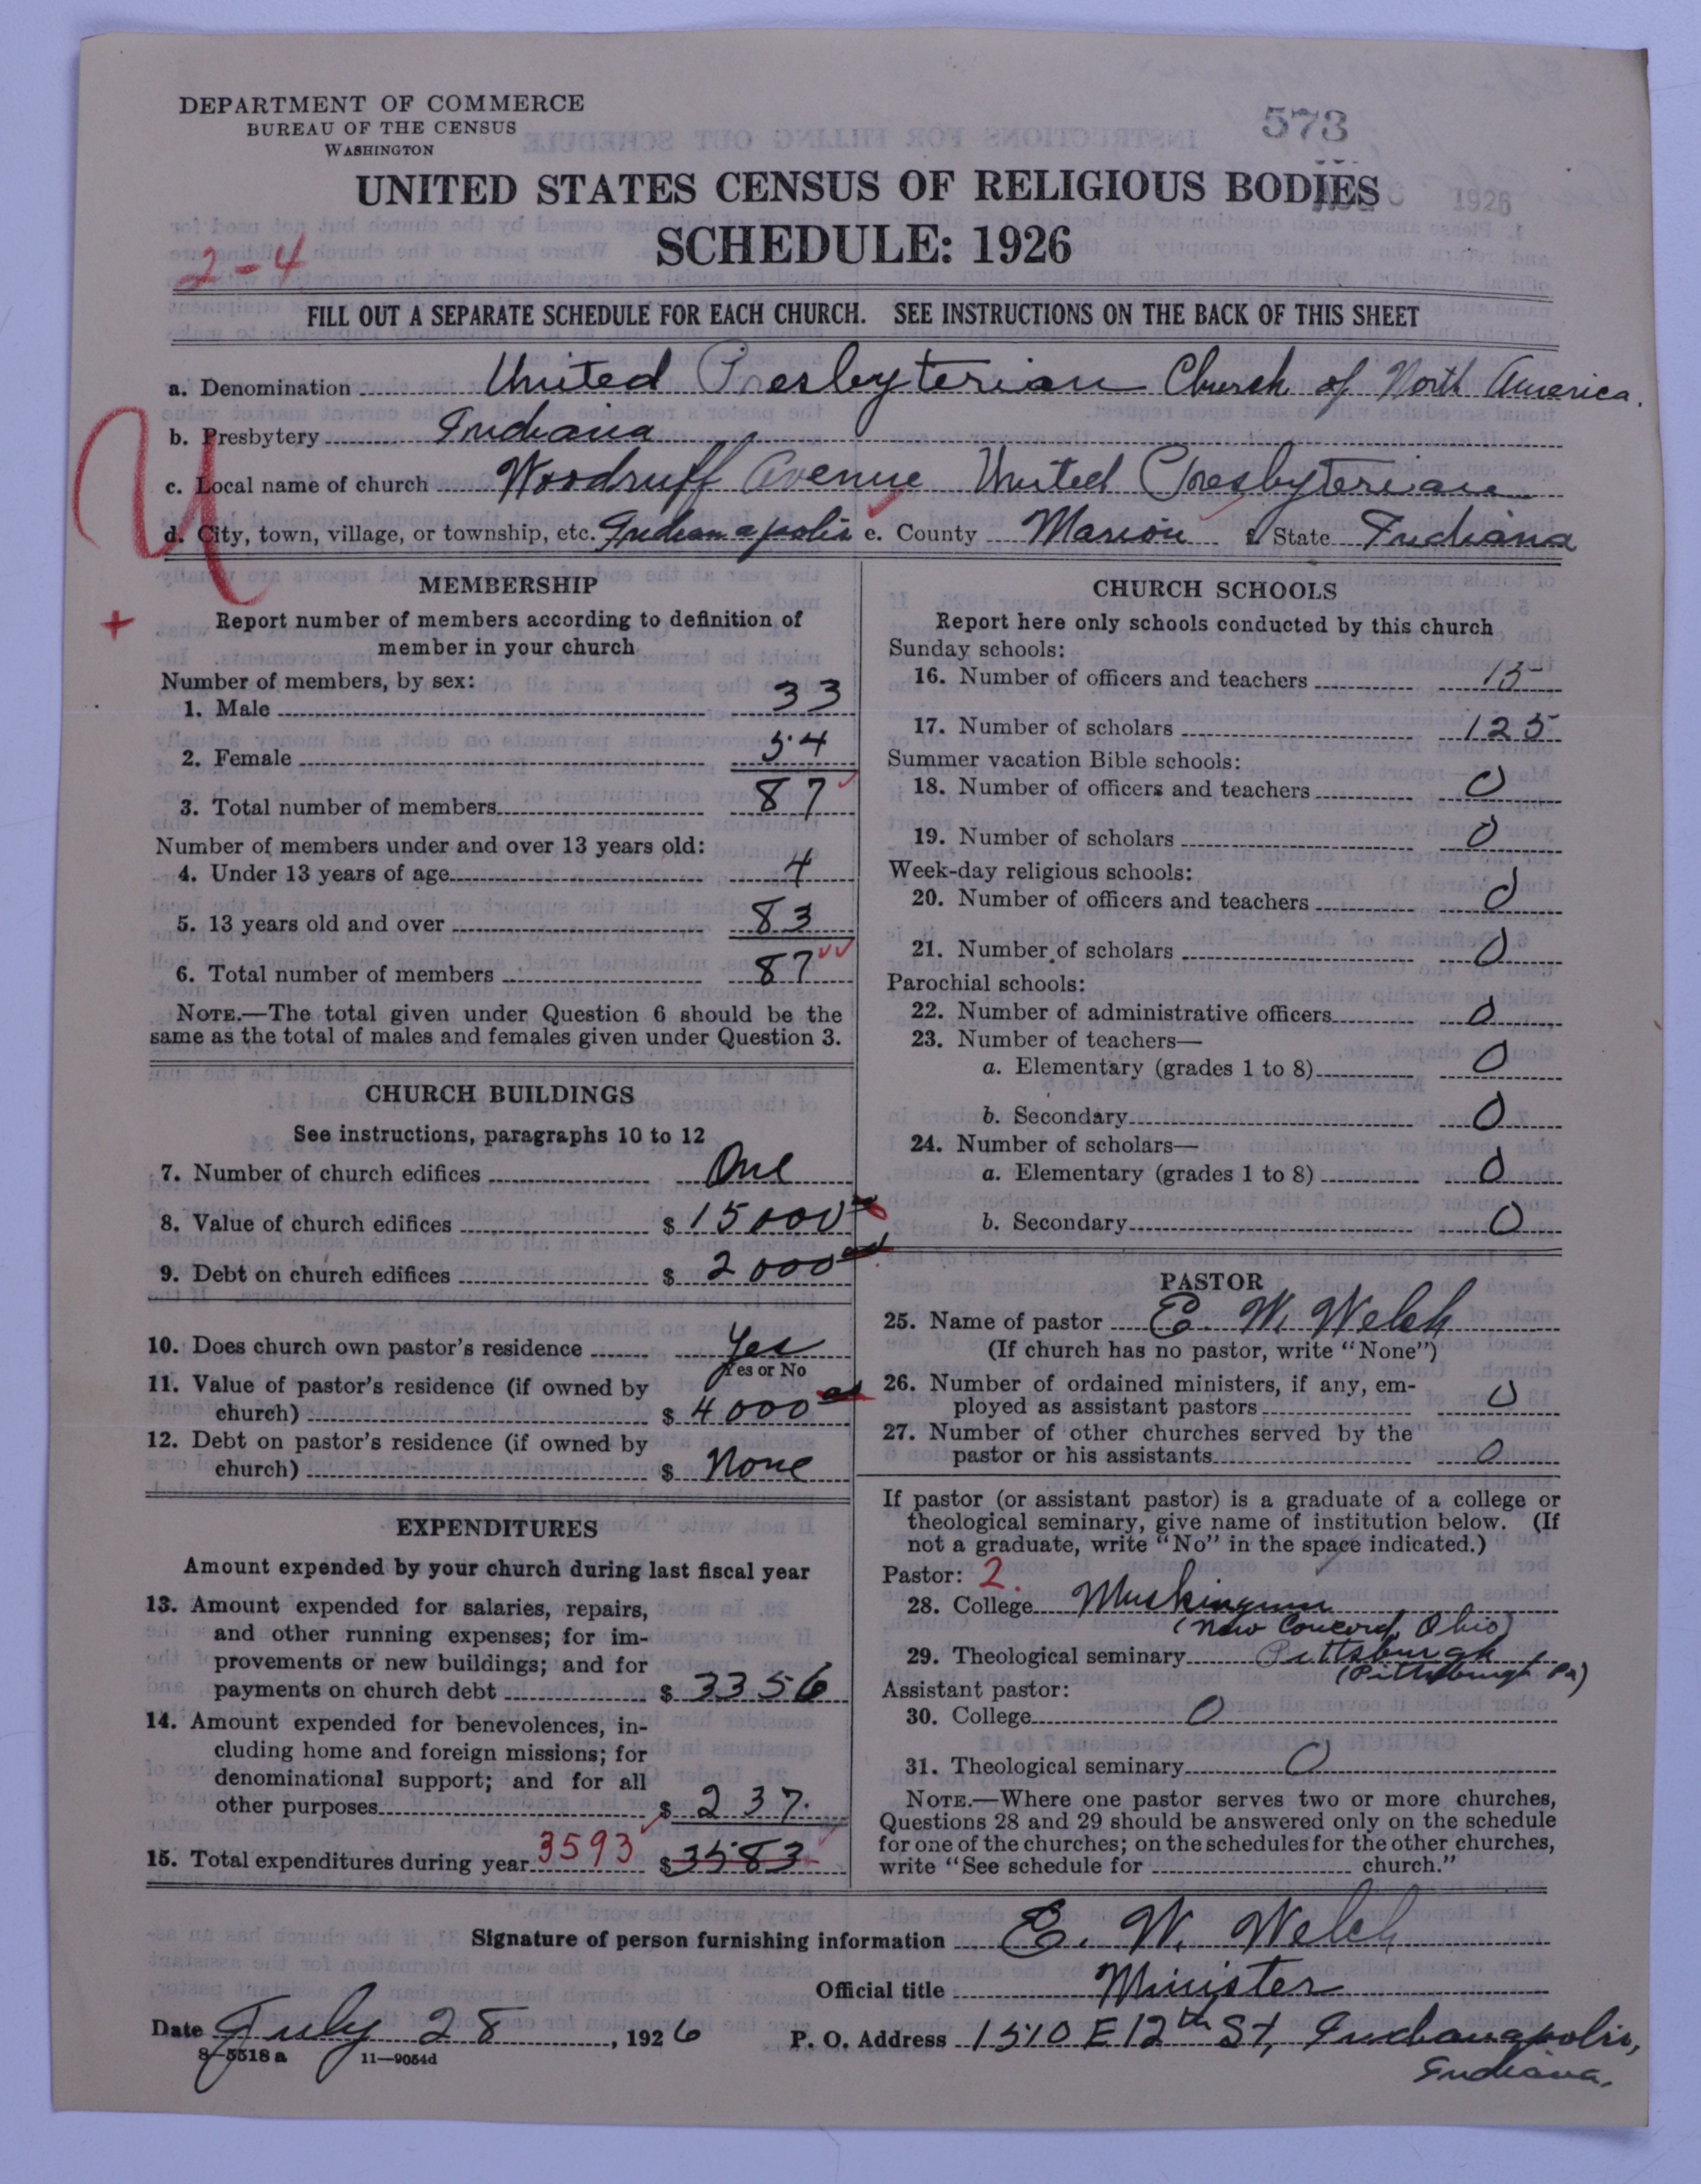 DEPARTMENT OF COMMERCE
BUREAU OF THE CENSUS
WASHINGTON
573
1926
UNITED STATES CENSUS OF RELIGIOUS BODIES
SCHEDULE: 1926
2-4
FILL OUT A SEPARATE SCHEDULE FOR EACH CHURCH. SEE INSTRUCTIONS ON THE BACK OF THIS SHEET
a. Denomination United Presbyterian Church of North America.
b. Presbytery Indiana
c. Local name of church Woodruff Avenue United Presbyterian
d. City, town, village, or township, etc. Indianapolis e. County Marion State Indiana
U
+
MEMBERSHIP
Report number of members according to definition of
member in your church
Number of members, by sex:
1. Male 33
2. Female 54
3. Total number of members 87
Number of members under and over 13 years old:
4. Under 13 years of age 4
5. 13 years old and over 83
6. Total number of members 87
NOTE.—The total given under Question 6 should be the
same as the total of males and females given under Question 3.
CHURCH BUILDINGS
See instructions, paragraphs 10 to 12
7. Number of church edifices One
8. Value of church edifices $ 15000
9. Debt on church edifices $ 2000
10. Does church own pastor's residence Yes
Yes or No
11. Value of pastor's residence (if owned by
church) $ 4000
12. Debt on pastor's residence (if owned by
church) $ None
EXPENDITURES
Amount expended by your church during last fiscal year
13. Amount expended for salaries, repairs,
and other running expenses; for im-
provements or new buildings; and for
payments on church debt $ 3356
14. Amount expended for benevolences, in-
cluding home and foreign missions; for
denominational support; and for all
other purposes $ 237.
15. Total expenditures during year 3593 $ 3583
CHURCH SCHOOLS
Report here only schools conducted by this church
Sunday schools:
16. Number of officers and teachers 15
17. Number of scholars 125
Summer vacation Bible schools:
18. Number of officers and teachers 0
19. Number of scholars 0
Week-day religious schools:
20. Number of officers and teachers 0
21. Number of scholars 0
Parochial schools:
22. Number of administrative officers 0
23. Number of teachers—
a. Elementary (grades 1 to 8) 0
b. Secondary 0
24. Number of scholars—
a. Elementary (grades 1 to 8) 0
b. Secondary 0
PASTOR
25. Name of pastor E. W. Welch
(If church has no pastor, write "None")
26. Number of ordained ministers, if any, em-
ployed as assistant pastors 0
27. Number of other churches served by the
pastor or his assistants 0
If pastor (or assistant pastor) is a graduate of a college or
theological seminary, give name of institution below. (If
not a graduate, write "No" in the space indicated.)
Pastor: 2.
28. College Muskingum
(New Concord, Ohio)
29. Theological seminary Pittsburgh
(Pittsburgh, Pa)
Assistant pastor:
30. College 0
31. Theological seminary 0
NOTE.—Where one pastor serves two or more churches,
Questions 28 and 29 should be answered only on the schedule
for one of the churches; on the schedules for the other churches,
write "See schedule for church."
Signature of person furnishing information E. W. Welch
Official title Minister
Date July 28, 1926 P. O. Address 1510 E 12th St, Indianapolis,
Indiana.
8-5518a 11—9054d